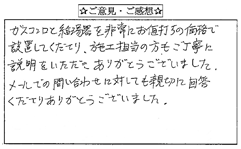 ☆ご意見・ご感想☆
ガスコンロと給湯器を非常にお値打ちの価格で
設置してくださり、施工担当の方もご丁寧に
説明をいただき ありがとうございました。
メールでの問い合わせに対しても親切に回答
くださりありがとうございました。